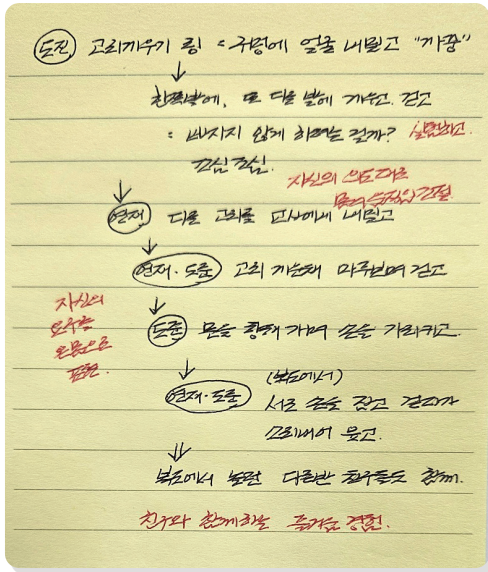 도진 고리끼우기 링 = 구멍에 얼굴 내밀고 "까꿍"
↓
한쪽발에, 또 다른 발에 끼우고. 걷고
: 빠지지 않게 하려는 걸까? 실험하고.
조심 조심.
자신의 의도대로
몸의 움직임 조절.
↓
연재 다른 고리를 교사에게 내밀고
↓
연재·도준 고리 끼운채 마주보며 걷고
↓
자신의
요구를
온몸으로
표현.
도준 문을 향해 가며 손을 가리키고.
↓
연재·도준 (복도에서)
서로 손을 잡고 걷다가
소리내어 웃고.
⇓
복도에서 놀던 다른반 친구들도 함께.
친구와 함께하는 즐거운 경험.